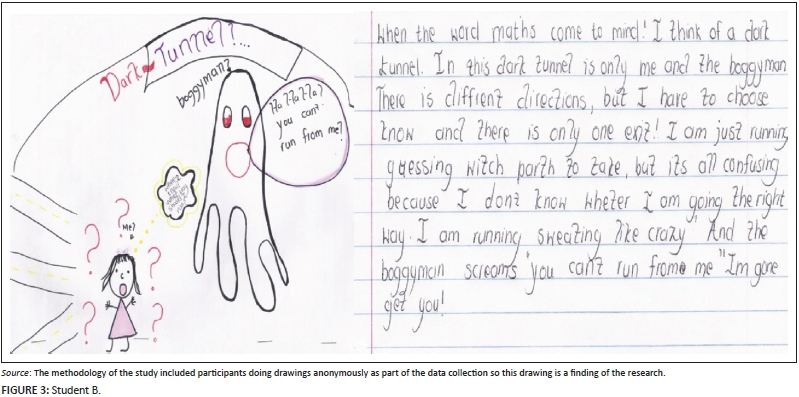 Dark Tunnel!...
boggyman?
Ha Ha Ha?
you can't
run from me?
Me?
When the word maths come to mind! I think of a dark
tunnel. In this dark tunnel is only me and the boggyman
There is diffrent directions, but I have to choose
know and there is only one exit! I am just running
guessing witch parth to take, but its all confusing
because I don't know wheter I am going the right
way. I am running sweating like crazy And the
boggyman screams "you can't run frome me "I'm gone
get you!
Source: The methodology of the study included participants doing drawings anonymously as part of the data collection so this drawing is a finding of the research.
FIGURE 3: Student B.